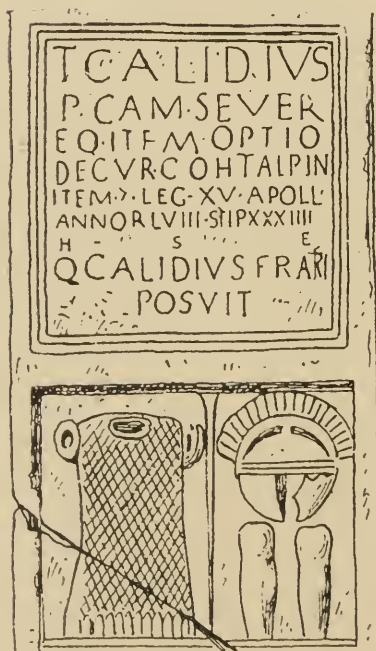 T CALIDIVS
P·CAM·SEVER
EQ·ITEM·OPTIO
DECVR·COHTALPIN
ITEM·7·LEG·XV·APOLL
ANNORLVIII·STIPXXXIIII
H S E
QCALIDIVS FRATRI
POSVIT